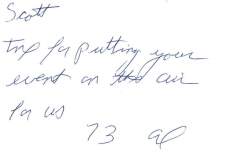 Scott
Tnx for putting your
event on the air
for us
73 al